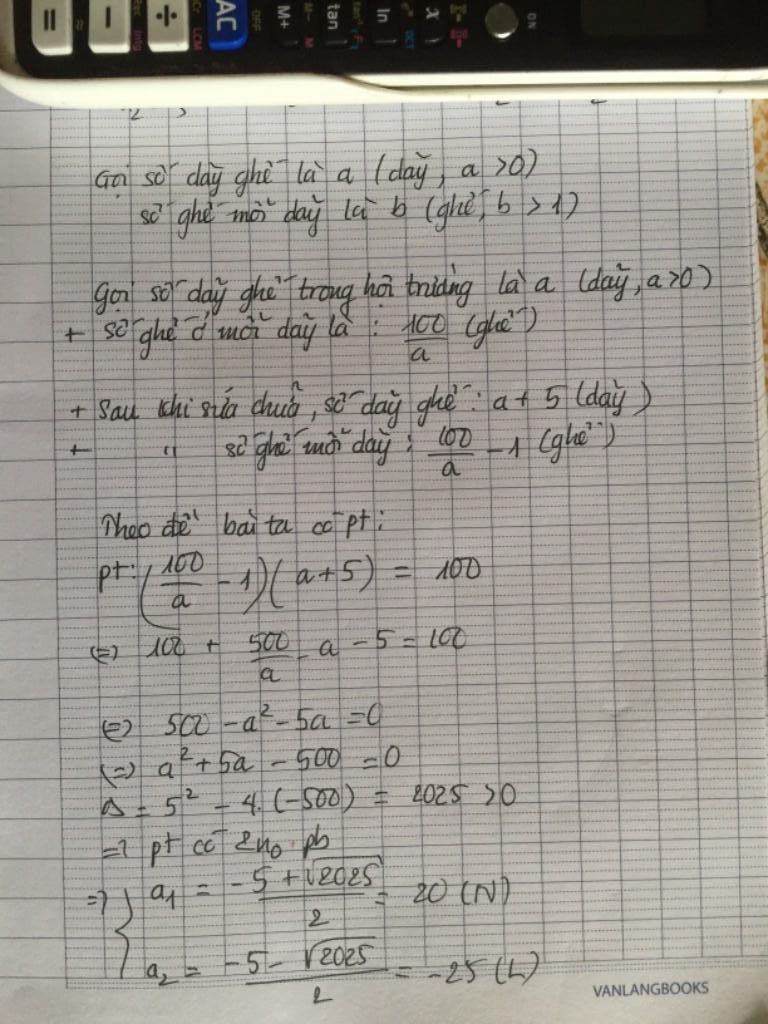 ON
OFF
AC
M+
M-
M
tan
ln
x
OCT
LCM
÷
−
=
Gọi số dãy ghế là a (dãy, a >0)
số ghế mỗi dãy là b (ghế, b > 1)
Gọi số dãy ghế trong hội trường là a (dãy, a>0)
+ số ghế ở mỗi dãy là : 100/a (ghế)
+ Sau khi sửa chữa, số dãy ghế : a + 5 (dãy)
+ " số ghế mỗi dãy : 100/a - 1 (ghế)
Theo đề bài ta có pt:
pt: (100/a - 1)(a+5) = 100
(=) 100 + 500/a - a - 5 = 100
(=) 500 - a² - 5a = 0
(=) a² + 5a - 500 = 0
Δ = 5² - 4.(-500) = 2025 >0
=> pt có 2n₀ pb
=> { a₁ = (-5 + √2025)/2 = 20 (N)
a₂ = (-5 - √2025)/2 = -25 (L)
VANLANGBOOKS